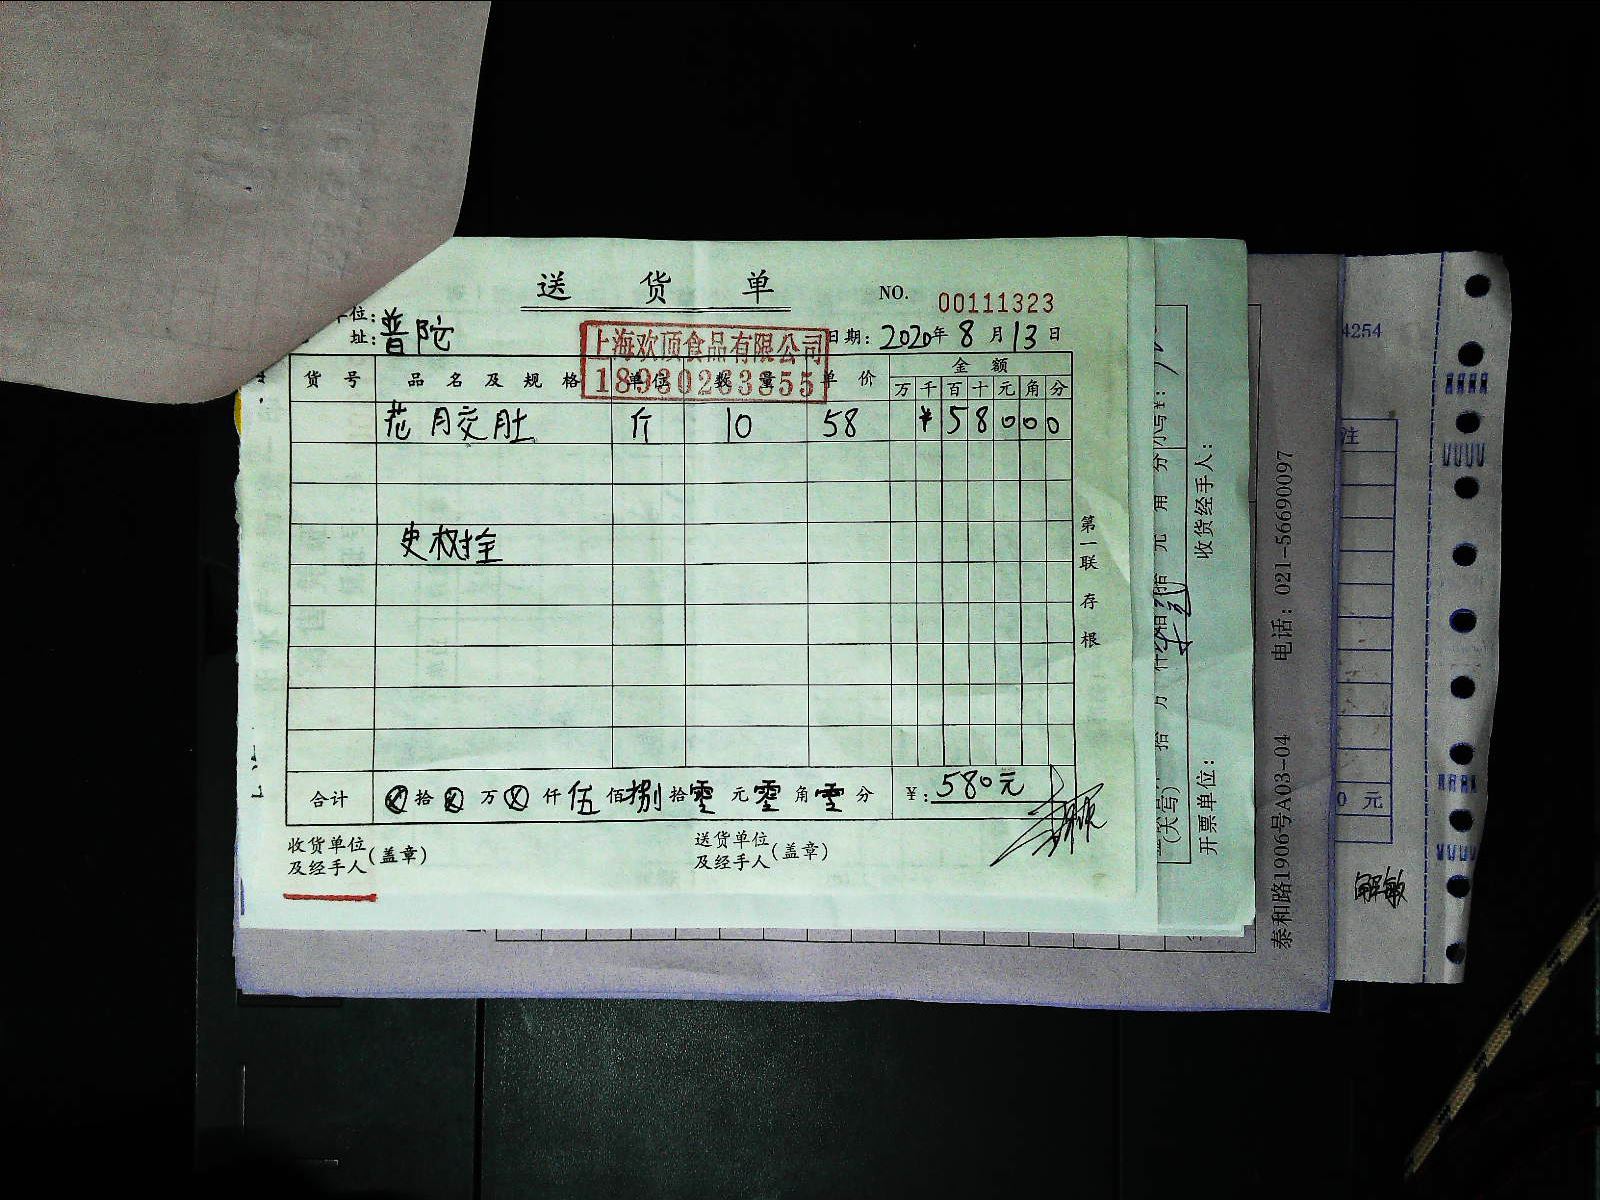 送 货 单
NO. 00111323
位:
址: 普陀
上海欢顶食品有限公司
18930263355
日期: 2020年 8 月 13 日
货 号 品 名 及 规 格 单位 数 量 单 价 金 额
万 千 百 十 元 角 分
花胶肚 斤 10 58 ¥ 5 8 0 0 0
史树拴
第一联 存根
合计 ⊗ 拾 ⊗ 万 ⊗ 仟 伍 佰 捌 拾 零 元 零 角 零 分 ¥: 580元
收货单位
及经手人(盖章)
送货单位
及经手人(盖章)
收货经手人:
开票单位:
(大写)
电话: 021-56690097
泰和路1906号A03-04
4254
注
0 元
解敏